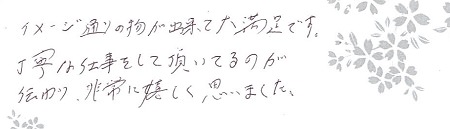 イメージ通りの物が出来て大満足です。
丁寧な仕事をして頂いてるのが
伝わり、非常に嬉しく思いました。